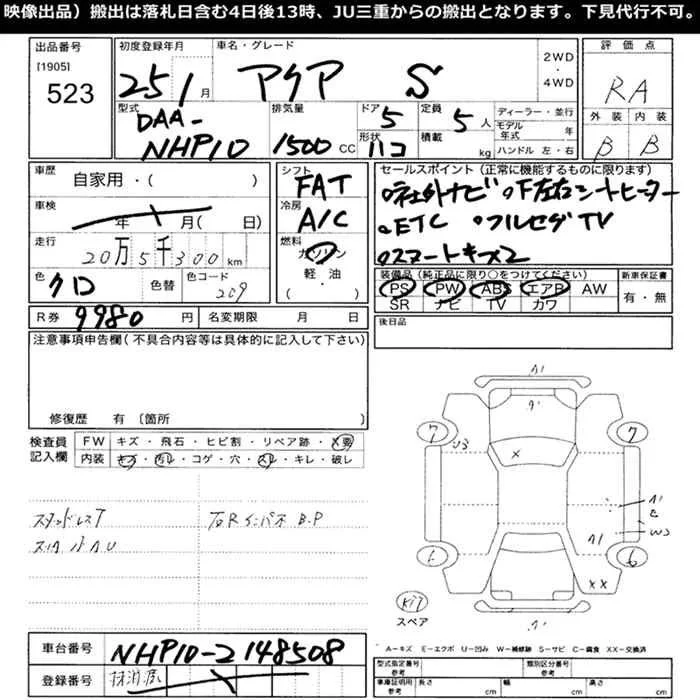 映像出品）搬出は落札日含む4日後13時、JU三重からの搬出となります。下見代行不可。
出品番号
[1905]
523
初度登録年月
25 1月
車名・グレード
アクア S
2WD
・
4WD
評価点
RA
外装 内装
B B
型式
DAA-
NHP10
排気量
1500 CC
ドア 5
形状 ハコ
定員 5人
積載 kg
ディーラー・並行
モデル年式 年
ハンドル 左・右
車歴
自家用・( )
車検
年 月( 日)
走行
20万5千300km
色 クロ 色替
色コード 209
シフト
FAT
冷房
A/C
燃料
ガソリン
軽・油
( ・ )
セールスポイント（正常に機能するものに限ります）
○社外ナビ ○F左右シートヒーター
○ETC ○フルセグTV
○スマートキー×2
装備品（純正品に限り○をつけてください）
PS PW ABS エアB AW
SR ナビ TV カワ
新車保証書
有・無
R券 9980円
名変期限 月 日
後日品
注意事項申告欄(不具合内容等は具体的に記入して下さい)
修復歴 有 〔箇所 〕
検査員
記入欄
FW キズ・飛石・ヒビ割・リペア跡・X要
内装 キズ・汚レ・コゲ・穴・スレ・キレ・破レ
スタッドレスT
右Rインパネ B.P
A1
A'
7
7
U3
X
A1
E
W3
A1
6
XX
A'
スペア
A'
A－キズ E－エクボ U－凹み W－補修跡 S－サビ C－腐食 XX－交換済
車台番号
NHP10-2148508
登録番号
抹消渡し
型式指定番号
参考
類別区分番号
参考
車庫証明用
参考
長さ cm
幅 cm
高さ cm